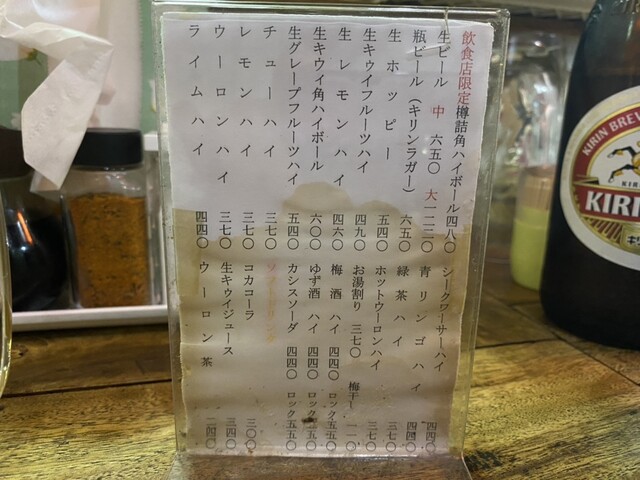 飲食店限定樽詰角ハイボール 四八〇 シークワーサーハイ 四四〇
生ビール 中 六五〇 大 一二三〇 青リンゴハイ 四四〇
瓶ビール（キリンラガー） 六五〇 緑茶ハイ 三七〇
生ホッピー 五四〇 ホットウーロンハイ 三七〇
生キゥイフルーツハイ 四九〇 お湯割り 三七〇 梅干し
生レモンハイ 四六〇 梅酒ハイ 四四〇 ロック 五五〇
生キウィ角ハイボール 六〇〇 ゆず酒ハイ 四四〇 ロック 五五〇
生グレープフルーツハイ 五四〇 カシスソーダ 四四〇 ロック 五五〇
チューハイ 三七〇 ソフトドリンク
レモンハイ 三七〇 コカコーラ 三〇〇
ウーロンハイ 三七〇 生キゥイジュース 三四〇
ライムハイ 四四〇 ウーロン茶
KIRIN BREW
KIRI